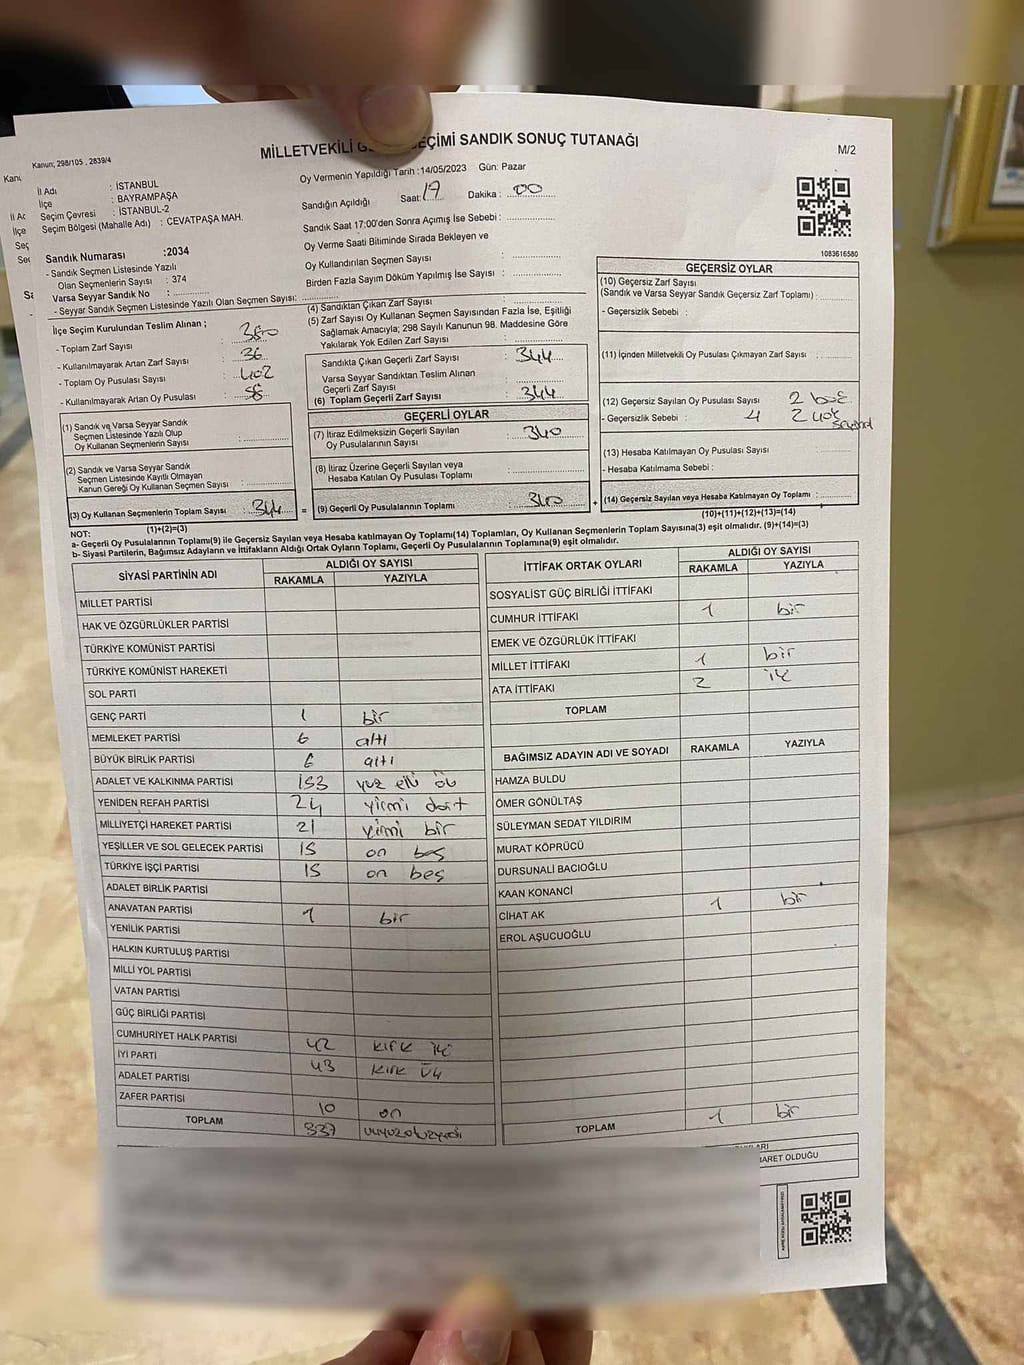 MİLLETVEKİLİ SEÇİMİ SANDIK SONUÇ TUTANAĞI
M/2
Kanun; 298/105 , 2839/4
İl Adı : İSTANBUL
İlçe : BAYRAMPAŞA
Seçim Çevresi : İSTANBUL-2
Seçim Bölgesi (Mahalle Adı) : CEVATPAŞA MAH.
Sandık Numarası :2034
- Sandık Seçmen Listesinde Yazılı
Olan Seçmenlerin Sayısı : 374
Varsa Seyyar Sandık No :
- Seyyar Sandık Seçmen Listesinde Yazılı Olan Seçmen Sayısı:
Oy Vermenin Yapıldığı Tarih :14/05/2023 Gün: Pazar
Sandığın Açıldığı Saat: 17 Dakika : 00
Sandık Saat 17:00'den Sonra Açımış İse Sebebi :
Oy Verme Saati Bitiminde Sırada Bekleyen ve
Oy Kullandırılan Seçmen Sayısı :
Birden Fazla Sayım Döküm Yapılmış İse Sayısı :
1083616580
İlçe Seçim Kurulundan Teslim Alınan ;
- Toplam Zarf Sayısı : 380
- Kullanılmayarak Artan Zarf Sayısı : 36
- Toplam Oy Pusulası Sayısı : 402
- Kullanılmayarak Artan Oy Pusulası : 58
(1) Sandık ve Varsa Seyyar Sandık
Seçmen Listesinde Yazılı Olup
Oy Kullanan Seçmenlerin Sayısı :
(2) Sandık ve Varsa Seyyar Sandık
Seçmen Listesinde Kayıtlı Olmayan
Kanun Gereği Oy Kullanan Seçmen Sayısı :
(3) Oy Kullanan Seçmenlerin Toplam Sayısı : 344 =
(1)+(2)=(3)
(4) Sandıktan Çıkan Zarf Sayısı :
(5) Zarf Sayısı Oy Kullanan Seçmen Sayısından Fazla İse, Eşitliği
Sağlamak Amacıyla; 298 Sayılı Kanunun 98. Maddesine Göre
Yakılarak Yok Edilen Zarf Sayısı :
Sandıkta Çıkan Geçerli Zarf Sayısı : 344
Varsa Seyyar Sandıktan Teslim Alınan
Geçerli Zarf Sayısı :
(6) Toplam Geçerli Zarf Sayısı : 344
GEÇERLİ OYLAR
(7) İtiraz Edilmeksizin Geçerli Sayılan
Oy Pusulalarının Sayısı : 340
(8) İtiraz Üzerine Geçerli Sayılan veya
Hesaba Katılan Oy Pusulası Toplamı :
(9) Geçerli Oy Pusulalarının Toplamı : 340 +
GEÇERSİZ OYLAR
(10) Geçersiz Zarf Sayısı
(Sandık ve Varsa Seyyar Sandık Geçersiz Zarf Toplamı) :
- Geçersizlik Sebebi :
(11) İçinden Milletvekili Oy Pusulası Çıkmayan Zarf Sayısı :
(12) Geçersiz Sayılan Oy Pusulası Sayısı : 2 boş
- Geçersizlik Sebebi : 4 2 çok
(13) Hesaba Katılmayan Oy Pusulası Sayısı
- Hesaba Katılmama Sebebi :
(14) Geçersiz Sayılan veya Hesaba Katılmayan Oy Toplamı :
(10)+(11)+(12)+(13)=(14)
NOT:
a- Geçerli Oy Pusulalarının Toplamı(9) ile Geçersiz Sayılan veya Hesaba katılmayan Oy Toplamı(14) Toplamları, Oy Kullanan Seçmenlerin Toplam Sayısına(3) eşit olmalıdır. (9)+(14)=(3)
b- Siyasi Partilerin, Bağımsız Adayların ve İttifakların Aldığı Ortak Oyların Toplamı, Geçerli Oy Pusulalarının Toplamına(9) eşit olmalıdır.
SİYASİ PARTİNİN ADI
ALDIĞI OY SAYISI
RAKAMLA YAZIYLA
MİLLET PARTİSİ
HAK VE ÖZGÜRLÜKLER PARTİSİ
TÜRKİYE KOMÜNİST PARTİSİ
TÜRKİYE KOMÜNİST HAREKETİ
SOL PARTİ
GENÇ PARTİ 1 bir
MEMLEKET PARTİSİ 6 altı
BÜYÜK BİRLİK PARTİSİ 6 altı
ADALET VE KALKINMA PARTİSİ 153 yüz elli üç
YENİDEN REFAH PARTİSİ 24 yirmi dört
MİLLİYETÇİ HAREKET PARTİSİ 21 yirmi bir
YEŞİLLER VE SOL GELECEK PARTİSİ 15 on beş
TÜRKİYE İŞÇİ PARTİSİ 15 on beş
ADALET BİRLİK PARTİSİ
ANAVATAN PARTİSİ 1 bir
YENİLİK PARTİSİ
HALKIN KURTULUŞ PARTİSİ
MİLLİ YOL PARTİSİ
VATAN PARTİSİ
GÜÇ BİRLİĞİ PARTİSİ
CUMHURİYET HALK PARTİSİ 42 kırk iki
İYİ PARTİ 43 kırk üç
ADALET PARTİSİ
ZAFER PARTİSİ 10 on
TOPLAM 337
İTTİFAK ORTAK OYLARI
ALDIĞI OY SAYISI
RAKAMLA YAZIYLA
SOSYALİST GÜÇ BİRLİĞİ İTTİFAKI
CUMHUR İTTİFAKI 1 bir
EMEK VE ÖZGÜRLÜK İTTİFAKI
MİLLET İTTİFAKI 1 bir
ATA İTTİFAKI 2 iki
TOPLAM
BAĞIMSIZ ADAYIN ADI VE SOYADI RAKAMLA YAZIYLA
HAMZA BULDU
ÖMER GÖNÜLTAŞ
SÜLEYMAN SEDAT YILDIRIM
MURAT KÖPRÜCÜ
DURSUNALİ BACIOĞLU
KAAN KONANCİ
CİHAT AK 1 bir
EROL AŞUCUOĞLU
TOPLAM 1 bir